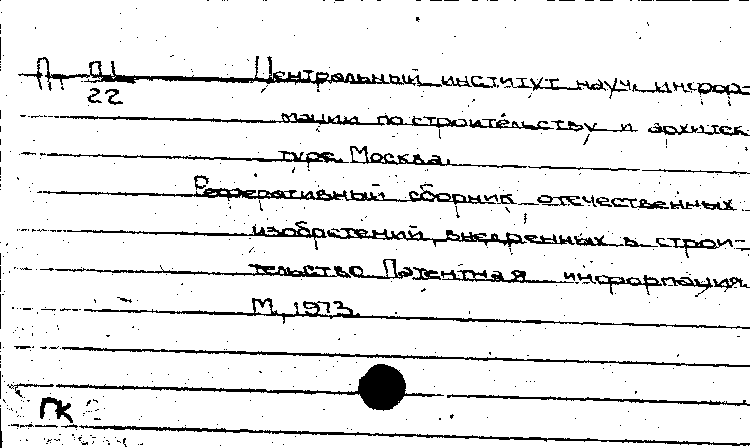 П. П1 Центральный институт науч. инфор-
22
мации по строительству и архитек
туре. Москва.
Реферативный сборник отечественных
изобретений, внедренных в строи-
тельство. Патентная информация.
М., 1973.
ПК